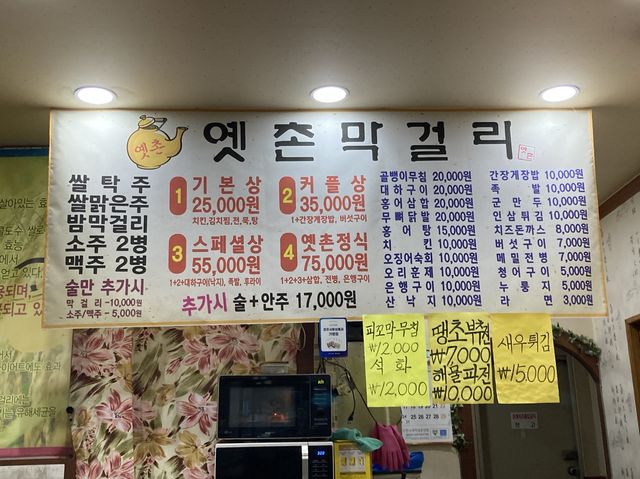 옛촌
옛촌막걸리
쌀탁주
쌀맑은주
밤막걸리
소주 2병
맥주 2병
술만 추가시
막걸리 -10,000원
소주/맥주 - 5,000원
1 기본상
25,000원
치킨,김치찜,전,묵,탕
2 커플상
35,000원
1+간장게장밥, 버섯구이
3 스페셜상
55,000원
1+2+대하구이(낙지), 족발, 후라이
4 옛촌정식
75,000원
1+2+3+삼합, 전병, 은행구이
추가시 술+안주 17,000원
골뱅이무침 20,000원
대하구이 20,000원
홍어삼합 20,000원
무뼈닭발 20,000원
홍어탕 15,000원
치킨 10,000원
오징어숙회 10,000원
오리훈제 10,000원
은행구이 10,000원
산낙지 10,000원
간장게장밥 10,000원
족발 10,000원
군만두 10,000원
인삼튀김 10,000원
치즈돈까스 8,000원
버섯구이 7,000원
메밀전병 7,000원
청어구이 5,000원
누룽지 5,000원
라면 3,000원
피꼬막무침
₩12,000
석화
₩12,000
땡초부침
₩7,000
해물파전
₩10,000
새우튀김
₩15,000
살아있는 효
효능
얻고 있다
용되며
되고 있
에서
이어트에도 효과
걸리에는
기는 유해세균을